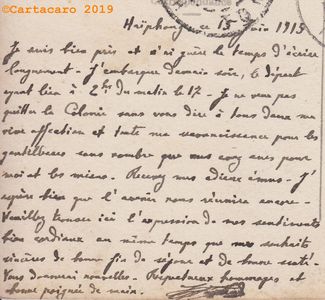 ©Cartacaro 2019
Correspondance
Haïphong, ce 15 Juin 1915
Je suis bien pris et n'ai guère le temps d'écrire
longuement - J'embarque demain soir, le départ
ayant lieu à 2h du matin le 17 - Je ne veux pas
quitter la Colonie sans vous dire à tous deux ma
vive affection et toute ma reconnaissance pour les
gentillesses sans nombre que vous avez eues pour
moi et les miens. Recevez mes adieux émus - J'
espère bien que l'avenir nous réunira encore -
Veuillez trouver ici l'expression de mes sentiments
bien cordiaux en même temps que mes souhaits
sincères de bonne fin de séjour et de bonne santé!
Vous donnerai nouvelles - Respectueux hommages et
bonne poignée de main.